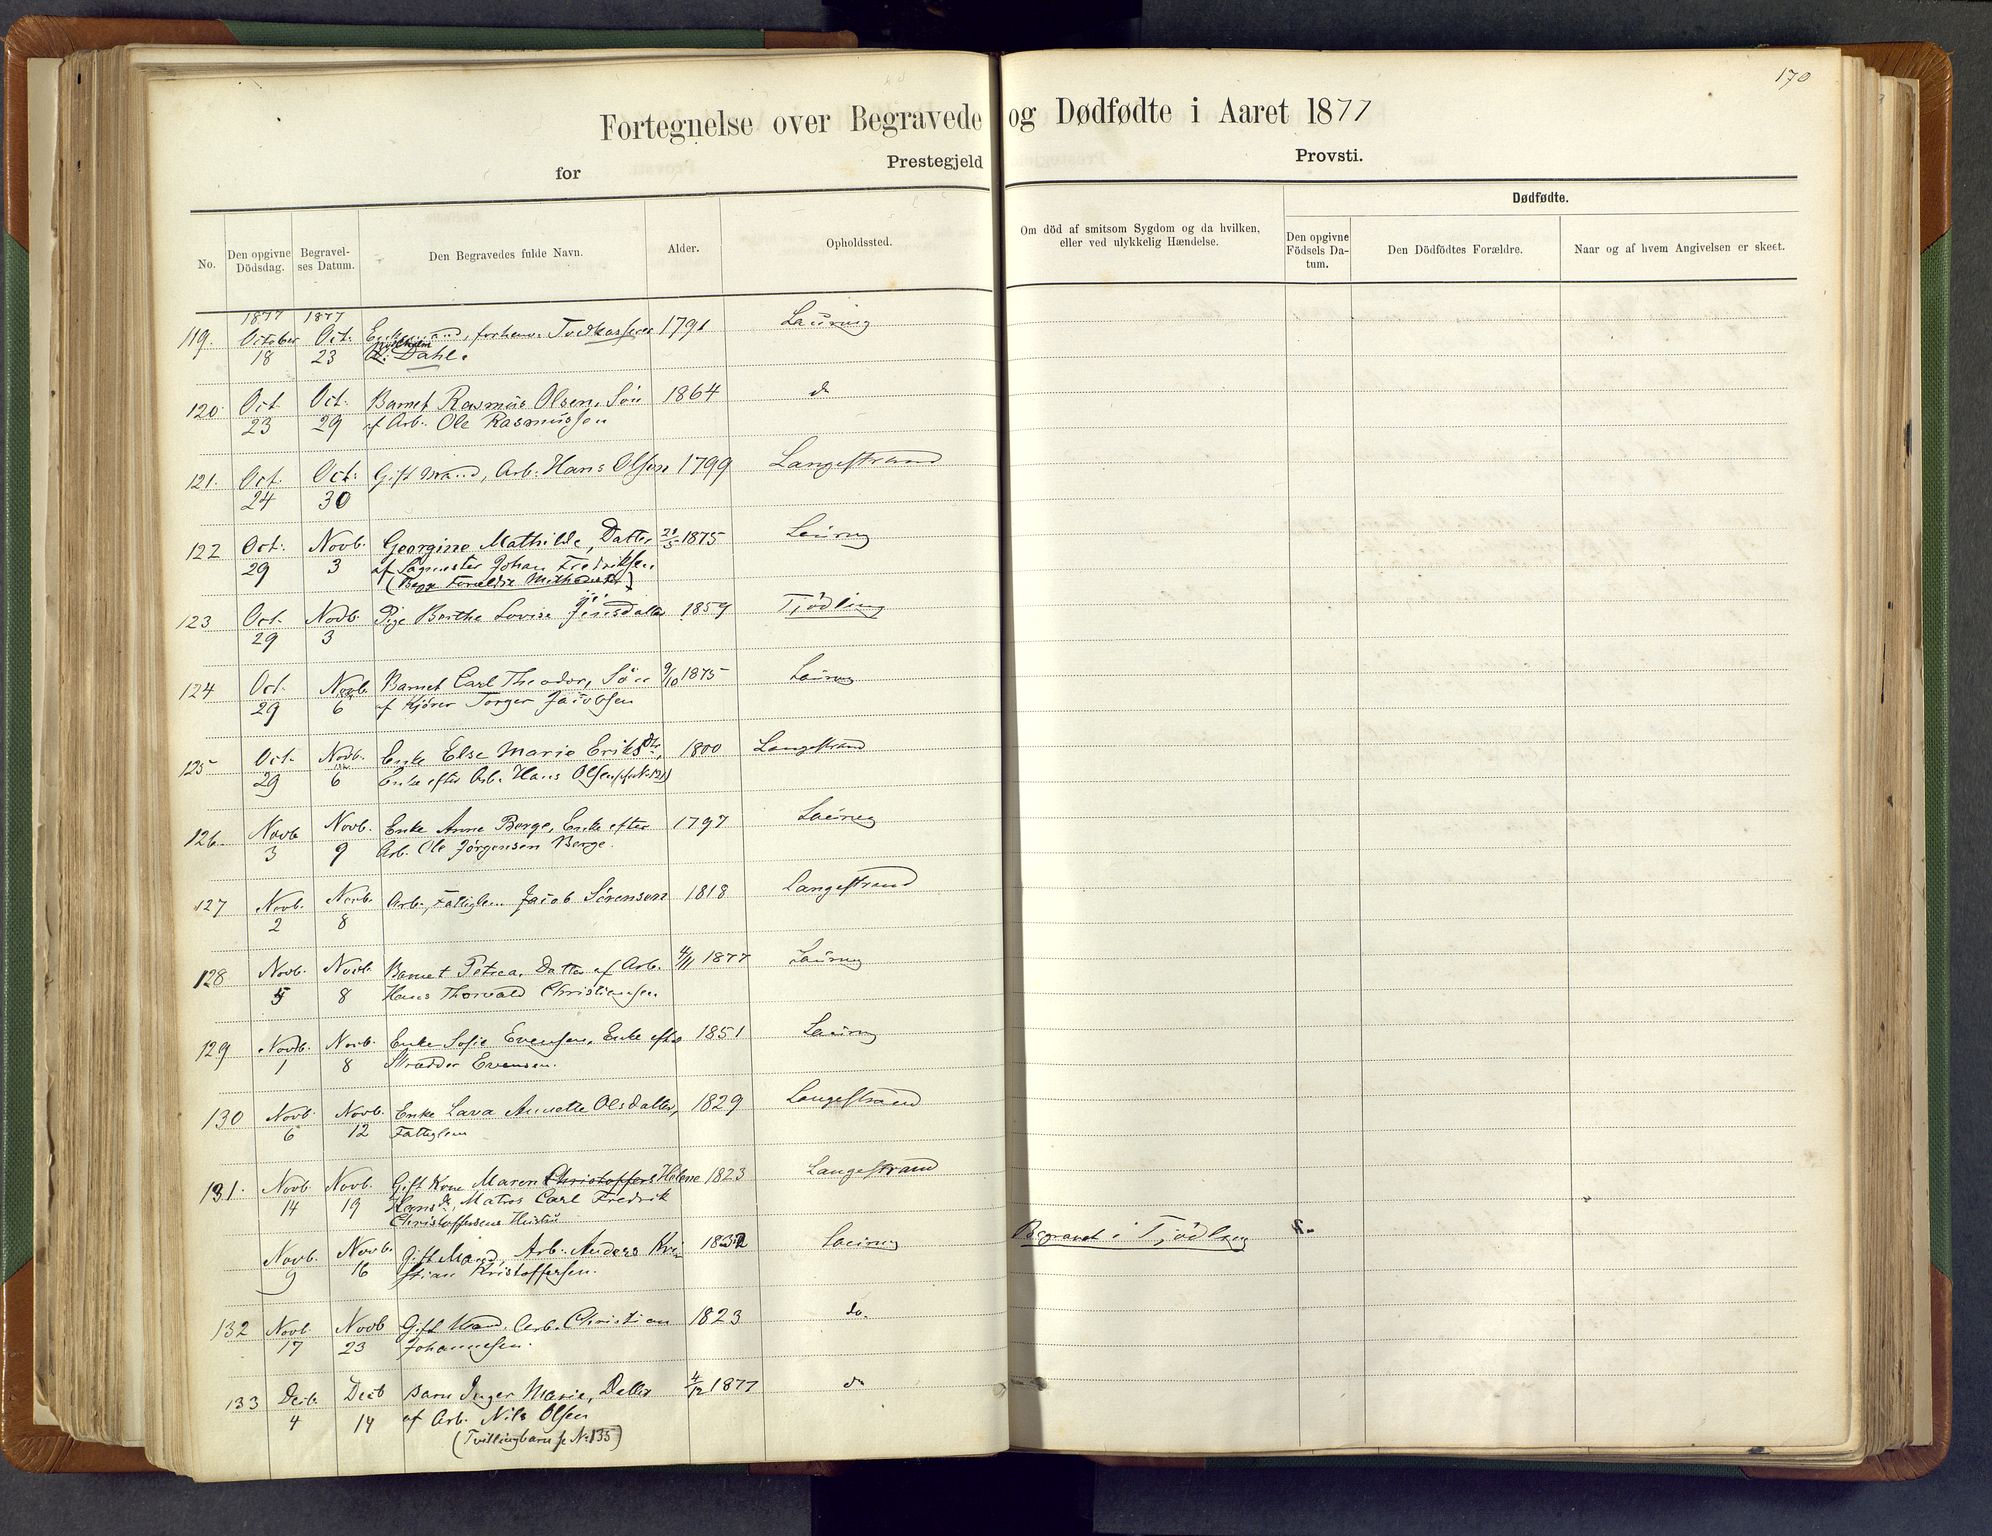 170
Fortegnelse over Begravede og Dødfødte i Aaret 1877
for Prestegjeld Provsti.
No. Den opgivne Dödsdag. Begravelses Datum. Den Begravedes fulde Navn. Alder. Opholdssted. Om död af smitsom Sygdom og da hvilken, eller ved ulykkelig Hændelse. Dødfødte. Den opgivne Födsels Datum. Den Dödfödtes Forældre. Naar og af hvem Angivelsen er skeet.
1877 1877
119. October Oct. Enkemand, forhenv. Toldkasserer 1791 Laurvig
18 23 Dahl.
120 Oct Oct. Barnet Rasmus Olsen, Sön 1864 do
23 29 af Arb. Ole Rasmussen
121. Oct. Oct. Gift Mand, Arb. Hans Olsen 1799 Langestrand
24 30
122 Oct. Novb. Georgine Mathilde, Datter 1875 Laurvig
29 3 af Sagmester Johan Fredriksen.
(Begge Forældre Methodister)
123 Oct. Novb. Pige Berthe Lovise Jensdatter 1859 Tjödling
29 3
124 Oct. Novb. Barnet Carl Theodor, Sön 9/10 1875 Laurvig
29 6 af Kjører Torger Jacobsen
125 Oct. Novb. Enke Else Marie Eriks Dtr. 1800 Langestrand
29 6 Enke efter Arb. Hans Olsen (se No 121)
126 Novb Novb. Enke Anne Berge, Enke efter 1797 Laurvig
3 9 Arb. Ole Jörgensen Berge.
127 Novb. Novb. Arb., Fattiglem Jacob Sörensen 1818 Langestrand
2 8
128 Novb. Novb. Barnet Petrea, Datter af Arb. 4/11 1877 Laurvig
5 8 Hans Thorvald Christiansen
129 Novb. Novb. Enke Sofie Evensen, Enke efter 1851 Laurvig
1 8 Skrædder Evensen.
130 Novb. Novb. Enke Lava Annette Olsdatter, 1829 Langestrand
6 12 Fattiglem
131. Novb Novb. Gift Kone Maren Christoffers Helene 1823 Langestrand
14 19 Hansd., Matros Carl Fredrik
Christoffersens Hustru
Novb. Novb. Gift Mand, Arb. Anders Kri- 1832 Laurvig Begravet i Tjödling
9 16 stian Kristoffersen.
132 Novb. Novb Gift Mand, Arb. Christian 1823 do.
17 23 Johannesen.
133 Decb. Decb Barn Inger Marie, Datter 4/12 1877 do
4 14 af Arb. Nils Olsen
(Tvillingbarn se No 135)